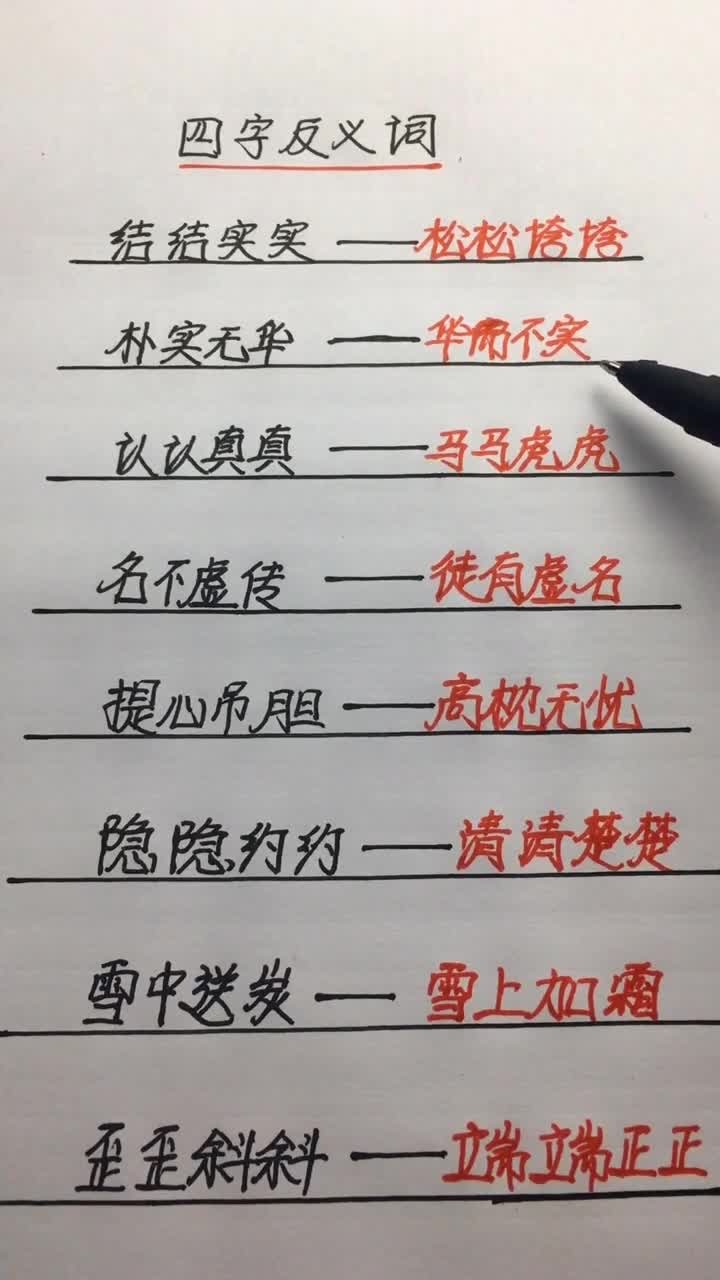 四字反义词
结结实实——松松垮垮
朴实无华——华而不实
认认真真——马马虎虎
名不虚传——徒有虚名
提心吊胆——高枕无忧
隐隐约约——清清楚楚
雪中送炭——雪上加霜
歪歪斜斜——端端正正